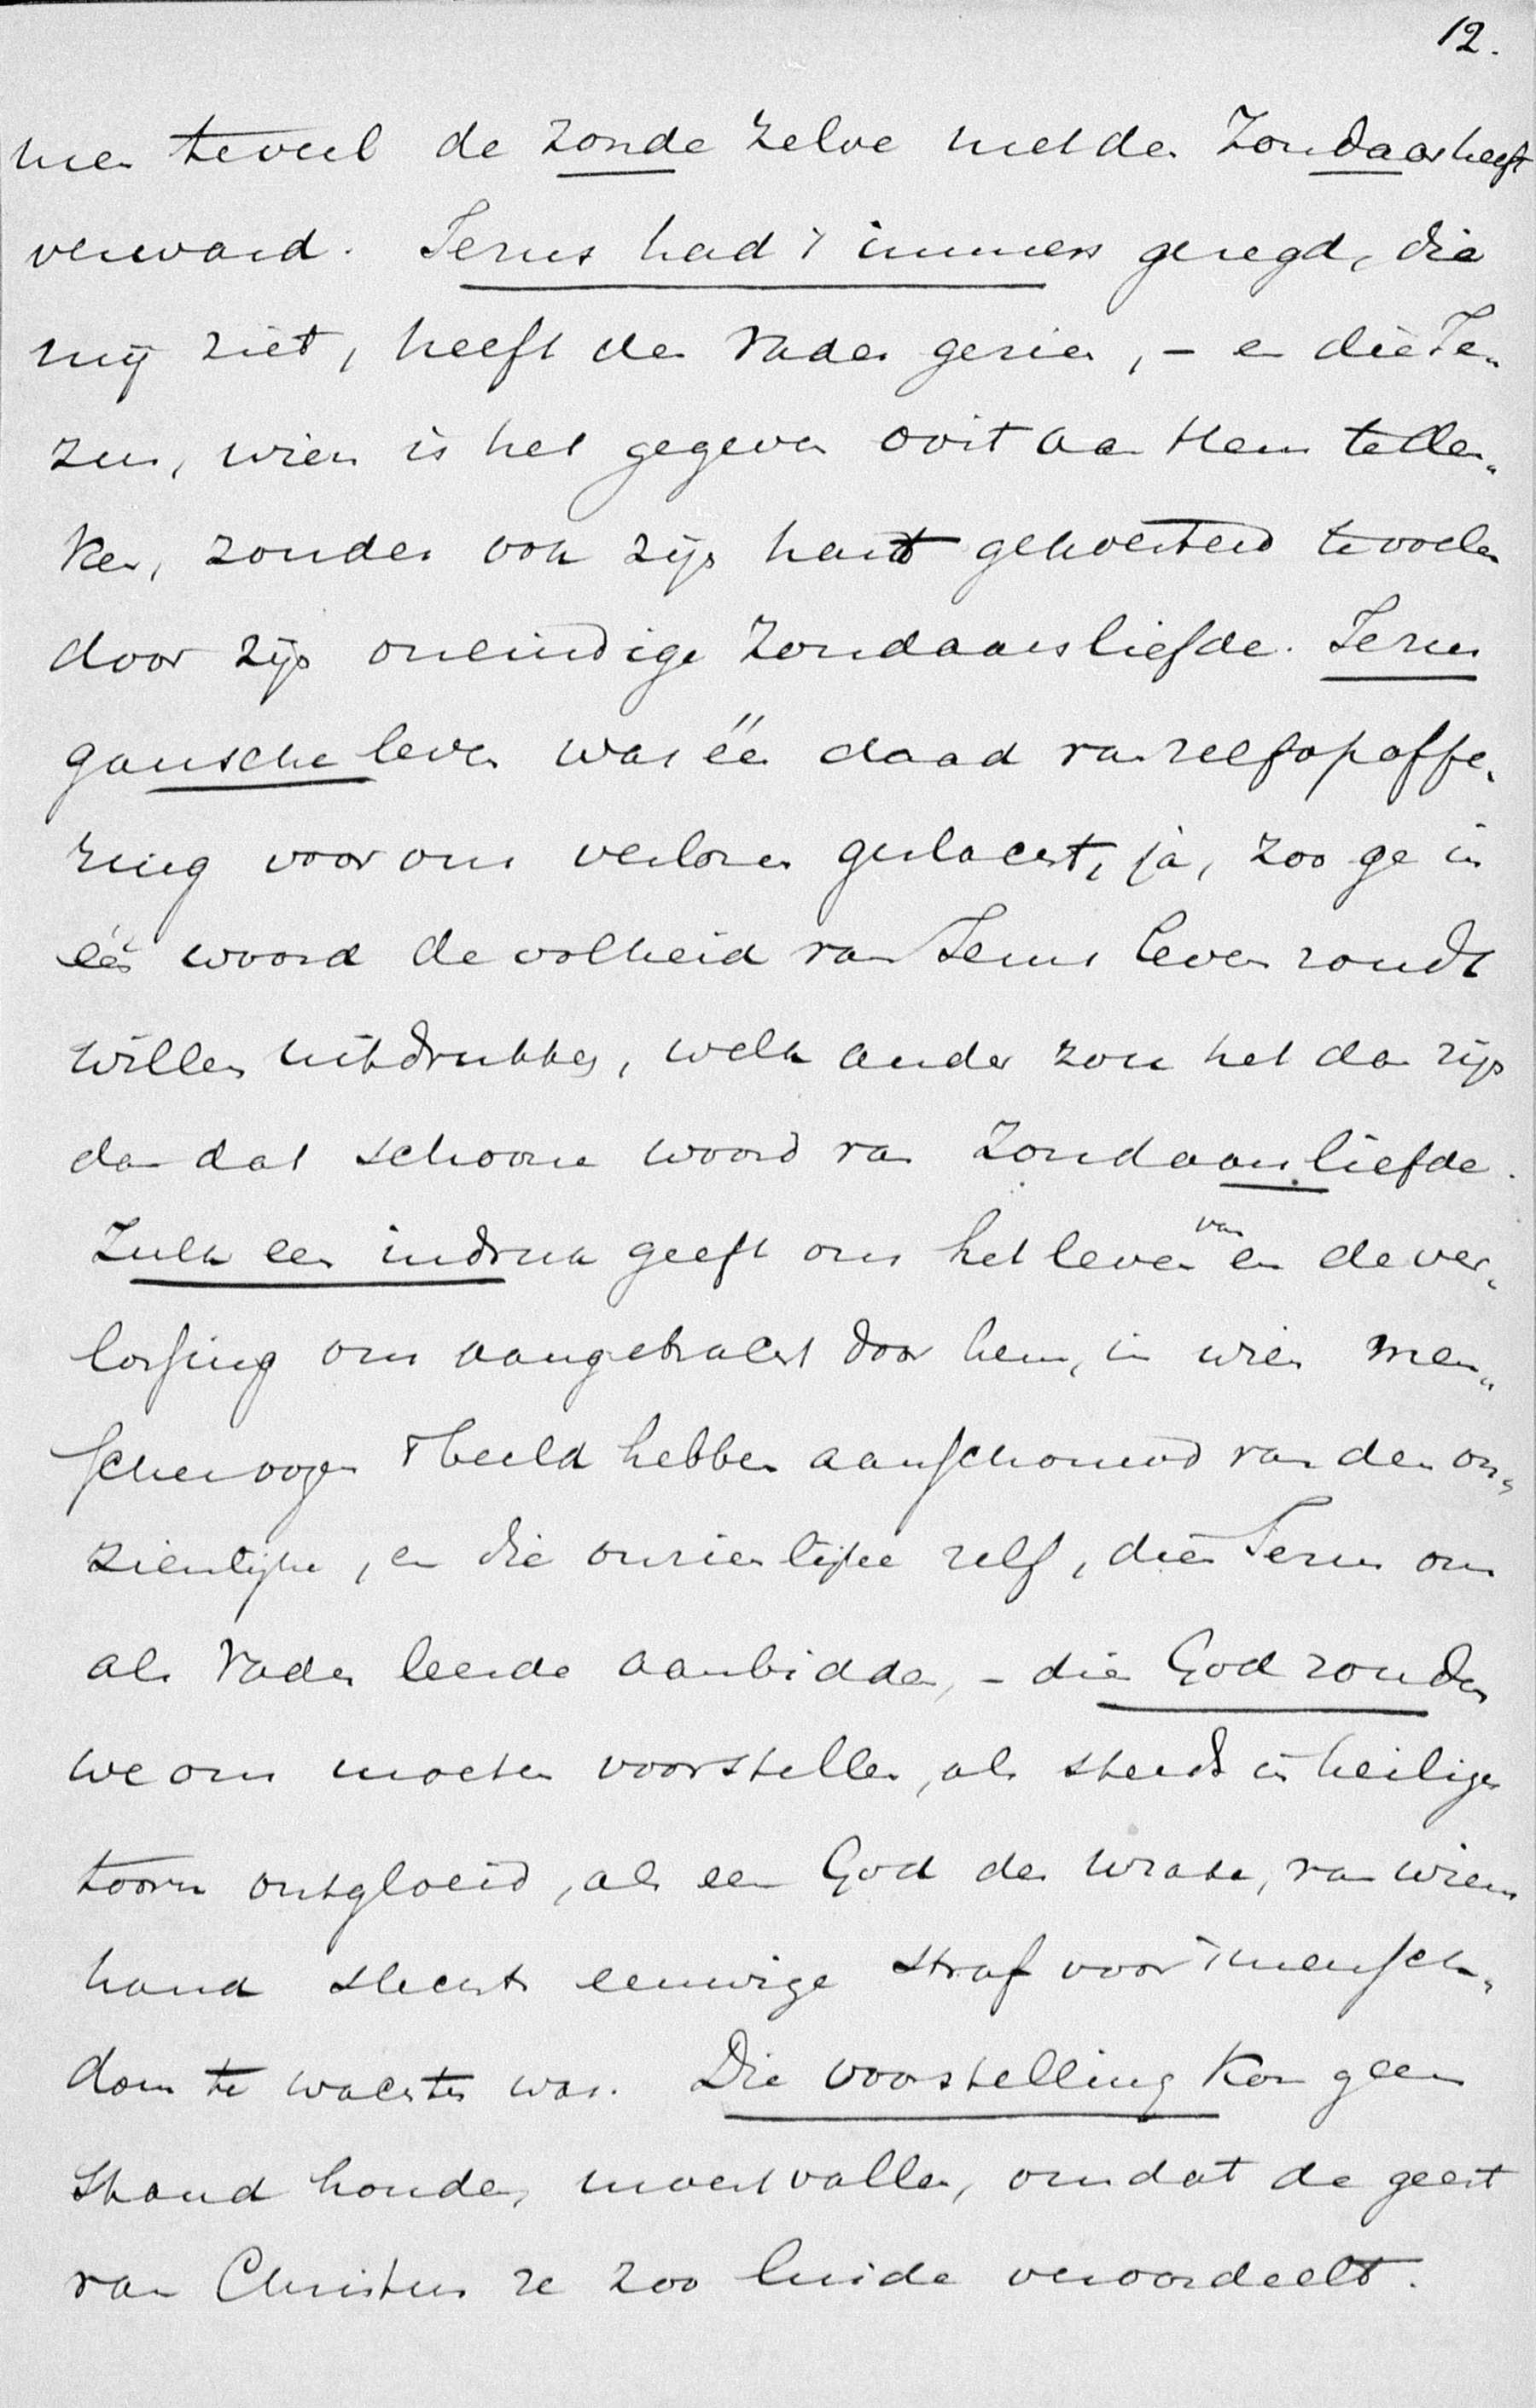 12.
men teveel de zonde zelve met den zondaar heeft
verward. Jezus had 't immers gezegd, die
mij ziet, heeft den Vader gezien, – en die Je„
zus, wien is het gegeven ooit aan Hem te den„
ken, zonder ook zijn hart gekoesterd te voelen
door zijn oneindige Zondaarsliefde. Jezus
gansche leven was één daad van zelfopoffe„
ring voor ons verloren geslacht, ja, zoo ge in
één woord de volheid van Jezus leven zoudt
willen uitdrukken, welk ander zou het dan zijn
dan dat schoone woord van Zondaarsliefde.
Zulk een indruk geeft ons het leven van en de ver„
lossing ons aangebracht door hem, in wien men„
schenoogen 't beeld hebben aanschouwd van den on„
zienlijke, en die onzienlijke zelf, dien Jezus ons
als Vader leerde aanbidden, – die God zouden
we ons moeten voorstellen, als steeds in heiligen
toorn ontgloeid, als een God der wrake, van wiens
hand slechts eeuwige straf voor 't mensch„
dom te wachten was. Die voorstelling kon geen
stand houden, moest vallen, omdat de geest
van Christus ze zoo luide veroordeelt.